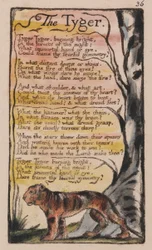 The Tyger.
Tyger Tyger, burning bright,
In the forests of the night;
What immortal hand or eye,
Could frame thy fearful symmetry?
In what distant deeps or skies
Burnt the fire of thine eyes?
On what wings dare he aspire?
What the hand, dare sieze the fire?
And what shoulder, & what art,
Could twist the sinews of thy heart?
And when thy heart began to beat,
What dread hand? & what dread feet?
What the hammer? what the chain,
In what furnace was thy brain?
What the anvil? what dread grasp,
Dare its deadly terrors clasp?
When the stars threw down their spears
And water'd heaven with their tears:
Did he smile his work to see?
Did he who made the Lamb make thee?
Tyger Tyger burning bright,
In the forests of the night:
What immortal hand or eye,
Dare frame thy fearful symmetry?